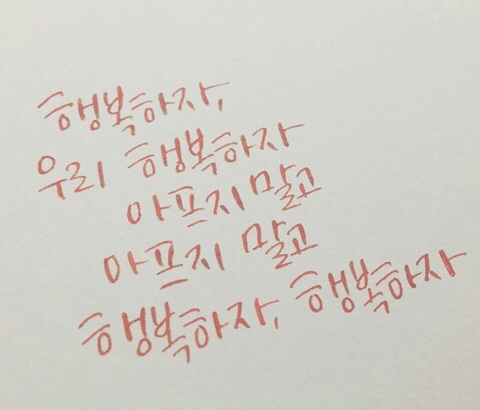 행복하자,
우리 행복하자
아프지 말고
아프지 말고
행복하자, 행복하자